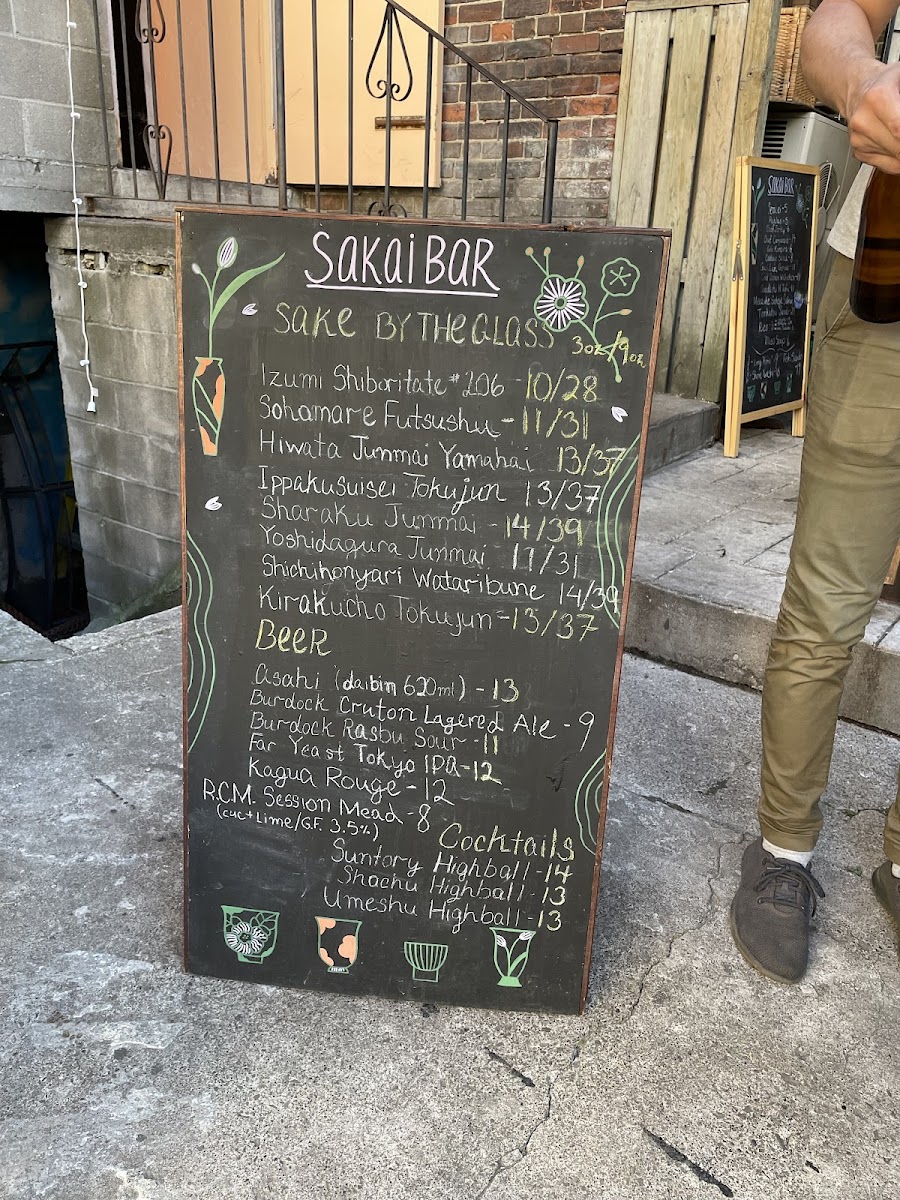 SAKAI BAR
SAKE BY THE GLASS 3oz/9oz
Izumi Shiboritate #206 - 10/28
Sohomare Futsushu - 11/31
Hiwata Junmai Yamahai 13/37
Ippakusuisei Tokujun 13/37
Sharaku Junmai - 14/39
Yoshidagura Junmai 11/31
Shichihonyari Wataribune 14/39
Kirakucho Tokujun - 13/37
BEER
Asahi (daibin 620ml) - 13
Burdock Cruton Lagered Ale - 9
Burdock Rasbu Sour - 11
Far Yeast Tokyo IPA - 12
Kagua Rouge - 12
R.C.M. Session Mead - 8
(cuc + Lime/G.F. 3.5%)
Cocktails
Suntory Highball - 14
Shochu Highball - 13
Umeshu Highball - 13
SAKAI BAR